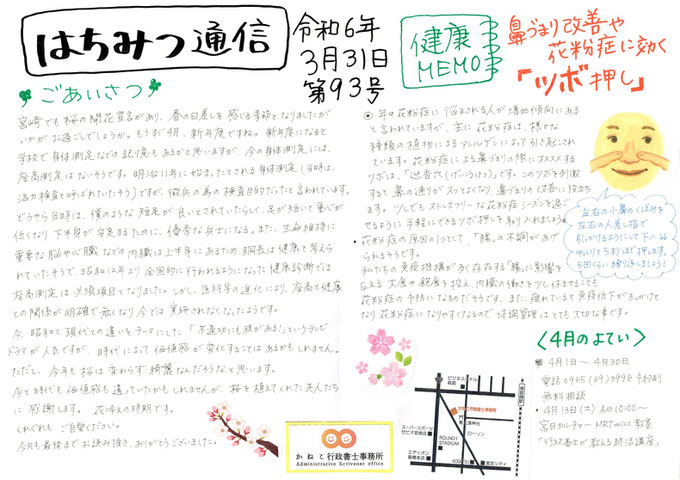 はちみつ通信
令和6年
3月31日
第93号
ごあいさつ
宮崎でも桜の開花宣言があり、春の日差しを感じる季節となりましたが
いかがお過ごしでしょうか。もうすぐ4月、新年度ですね。新年度になると
学校で身体測定などの記憶もあるかと思いますが、今の身体測定には、
座高測定はないそうです。明治11年に始まったとされる身体測定(当時は、
活力検査と呼ばれていたそう)ですが、徴兵の為の検査目的だったと言われています。
どうやら当時は、僕のような短足が良いとされていたらしく、足が短いて重心が
低くなり下半身が安定するために、優秀な兵士になる。また、生命維持に
重要な脳や心臓などの内臓は上半身にあるため、胴長は健康と考えら
れていたそうで、昭和12年より全国的に行われるようになった健康診断では
座高測定は必須項目となりました。しかし、医科学の進化により、座高と健康
との関係が明確で無くなり今では実施されなくなったようです。
今、昭和と現代との違いをテーマにした「不適切にも程がある」というテレビ
ドラマが人気ですが、時代によって価値観が変化することはあるかもしれません。
ただし、今年も桜は変わらず綺麗なんだろうなと思います。
今と時代も価値感も違っていたかもしれませんが、桜を植えてくれた先人たち
に感謝します。花冷えの時期です。
くれぐれもご自愛ください。
今月も最後までお読み頂き、ありがとうございました。
健康
MEMO
鼻づまり改善や
花粉症に効く
「ツボ押し」
年々花粉症に悩まされる人が増加傾向にある
と言われていますが、主に花粉症は、様々な
種類の植物によるアレルゲンによって引き起こされ
ています。花粉症による鼻づまりの際にオススメする
ツボは、「迎香穴(げいこうけつ)」です。このツボを刺激
すると鼻の通りがスッとよくなり鼻づまりの改善に役立ち
ます。少しでもストレスフリーな花粉症シーズンを過ご
せるように手軽にできるツボ押しを取り入れましょう。
花粉症の原因の1つとして、「腸」の不調があげ
られるそうです。
私たちの免疫機構が多く存在する「腸」に影響を
与える大食や飽食を控え、内臓の働きを少し休ませることも
花粉症の予防になるのだそうです。また、疲れていると免疫低下がきっかけと
なり花粉症になりやすくなるので体調管理はとても大切な事です。
左右の小鼻のくぼみを
左右の人差し指で
引っかけるようにして下へ
ゆっくりと5秒ほど押します。
5回くらい繰り返しましょう!
〈4月のよてい〉
4月1日〜4月30日
電話0985(69)3998予約制
無料相談
4月13日(土)AM10:00〜
宮日カルチャーMRTmicc教室
かねこ行政書士事務所
Administrative Scrivener office
ビジネスホテル
かねこ行政書士事務所
スーパースポーツ
ゼビオ宮崎店
ROUND1
STADIUM
ローソン
エディオン
宮崎本店
宮交シティ